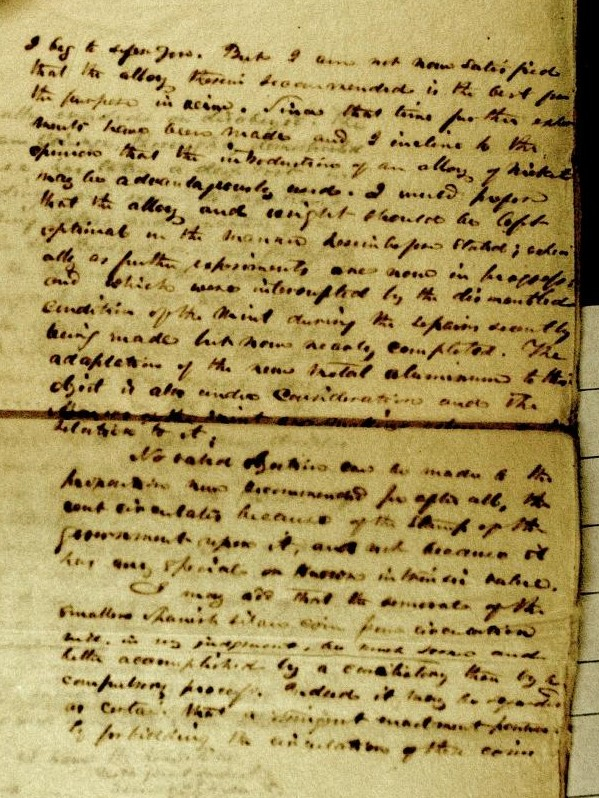 I beg to refer you. But I am not now satisfied
that the alloy therein recommended is the best for
the purpose in view. Since that time further exper
ments have been made and I incline to the
opinion that the introduction of an alloy of nickel
may be advantageously used. I would prefer
that the alloy and weight should be left
optional in the manner hereinbefore stated; especi
ally as further experiments are now in progress
and which were interrupted by the dismantled
condition of the Mint during the repairs recently
being made but now nearly completed. The
adaptation of the new metal aluminum to this
object is also under consideration and the
of the mint are making
relation to it.
No valid objection can be made to the
proposition now recommended for after all, the
cent circulates because of the stamp of the
government upon it, and not because it
has any special or known intrinsic value.
I may add that the removal of the
smaller Spanish silver coin from circulation
will, in my judgment, be much sooner and
better accomplished by a conciliatory than by a
compulsory process. Indeed it may be regarded
as certain that a stringent enactment
ly forbidding the circulation of these coins